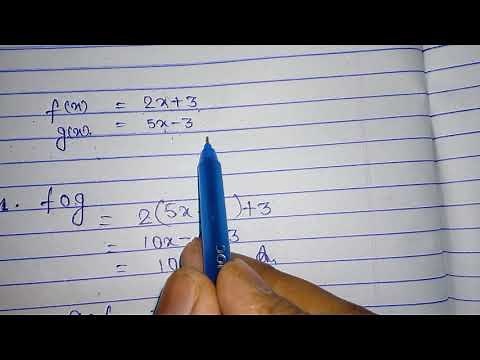 f(x) = 2x+3
g(x) = 5x-3
fog = 2(5x )+3
= 10x- 3
= 10